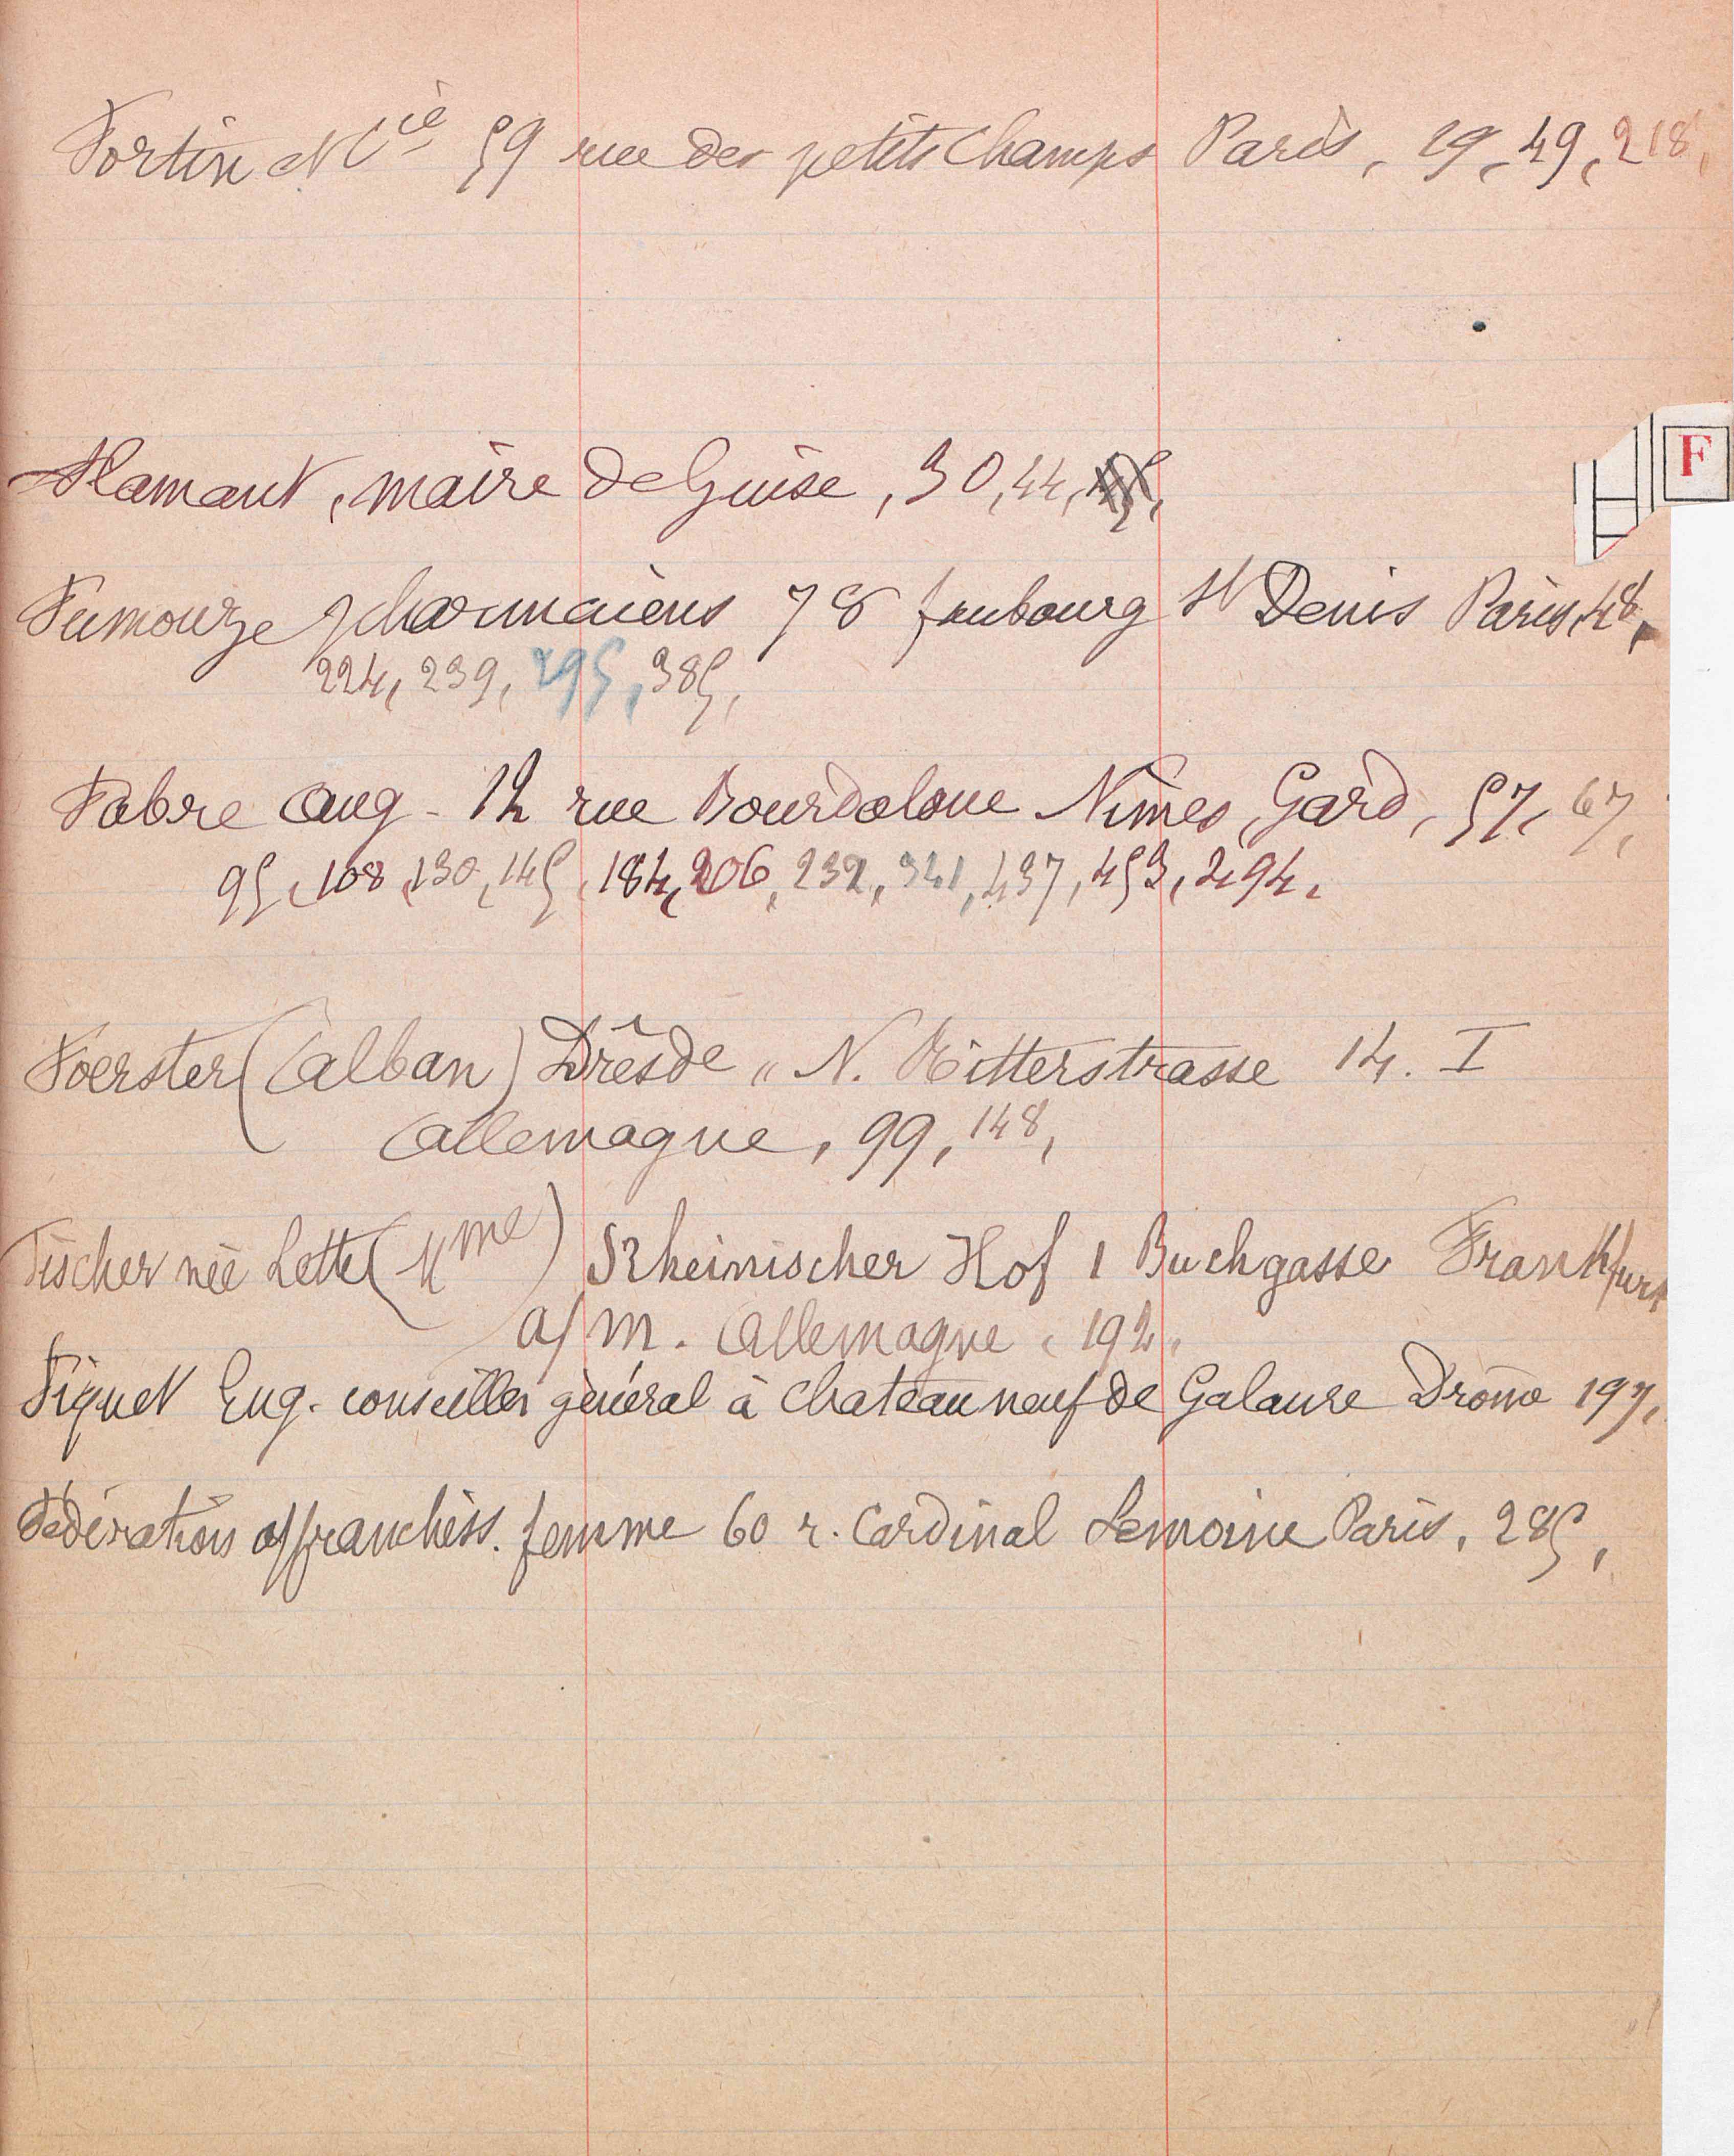 Fortin et Cie 59 rue des petits Champs Paris, 19, 49, 218,
Flamant, maire de Guise, 30, 44,
F
Fumouze pharmaciens 78 faubourg St Denis Paris, 48,
224, 239, 295, 385,
Fabre Aug - 12 rue Bourdaloue Nîmes, Gard, 57, 67,
95, 108, 130, 145, 184, 206, 232, 341, 437, 453, 494,
Foerster (Alban) Dresde " N. Ritterstrasse 14. I
Allemagne, 99, 148,
Fischer née Lette (Mme) Rheinischer Hof 1 Buchgasse Frankfurt
a/m. Allemagne, 192,
Fiquet Eug. conseiller général à Chateauneuf de Galaure Drôme 197,
Fédération affranchiss. femme 60 r. Cardinal Lemoine Paris, 285,